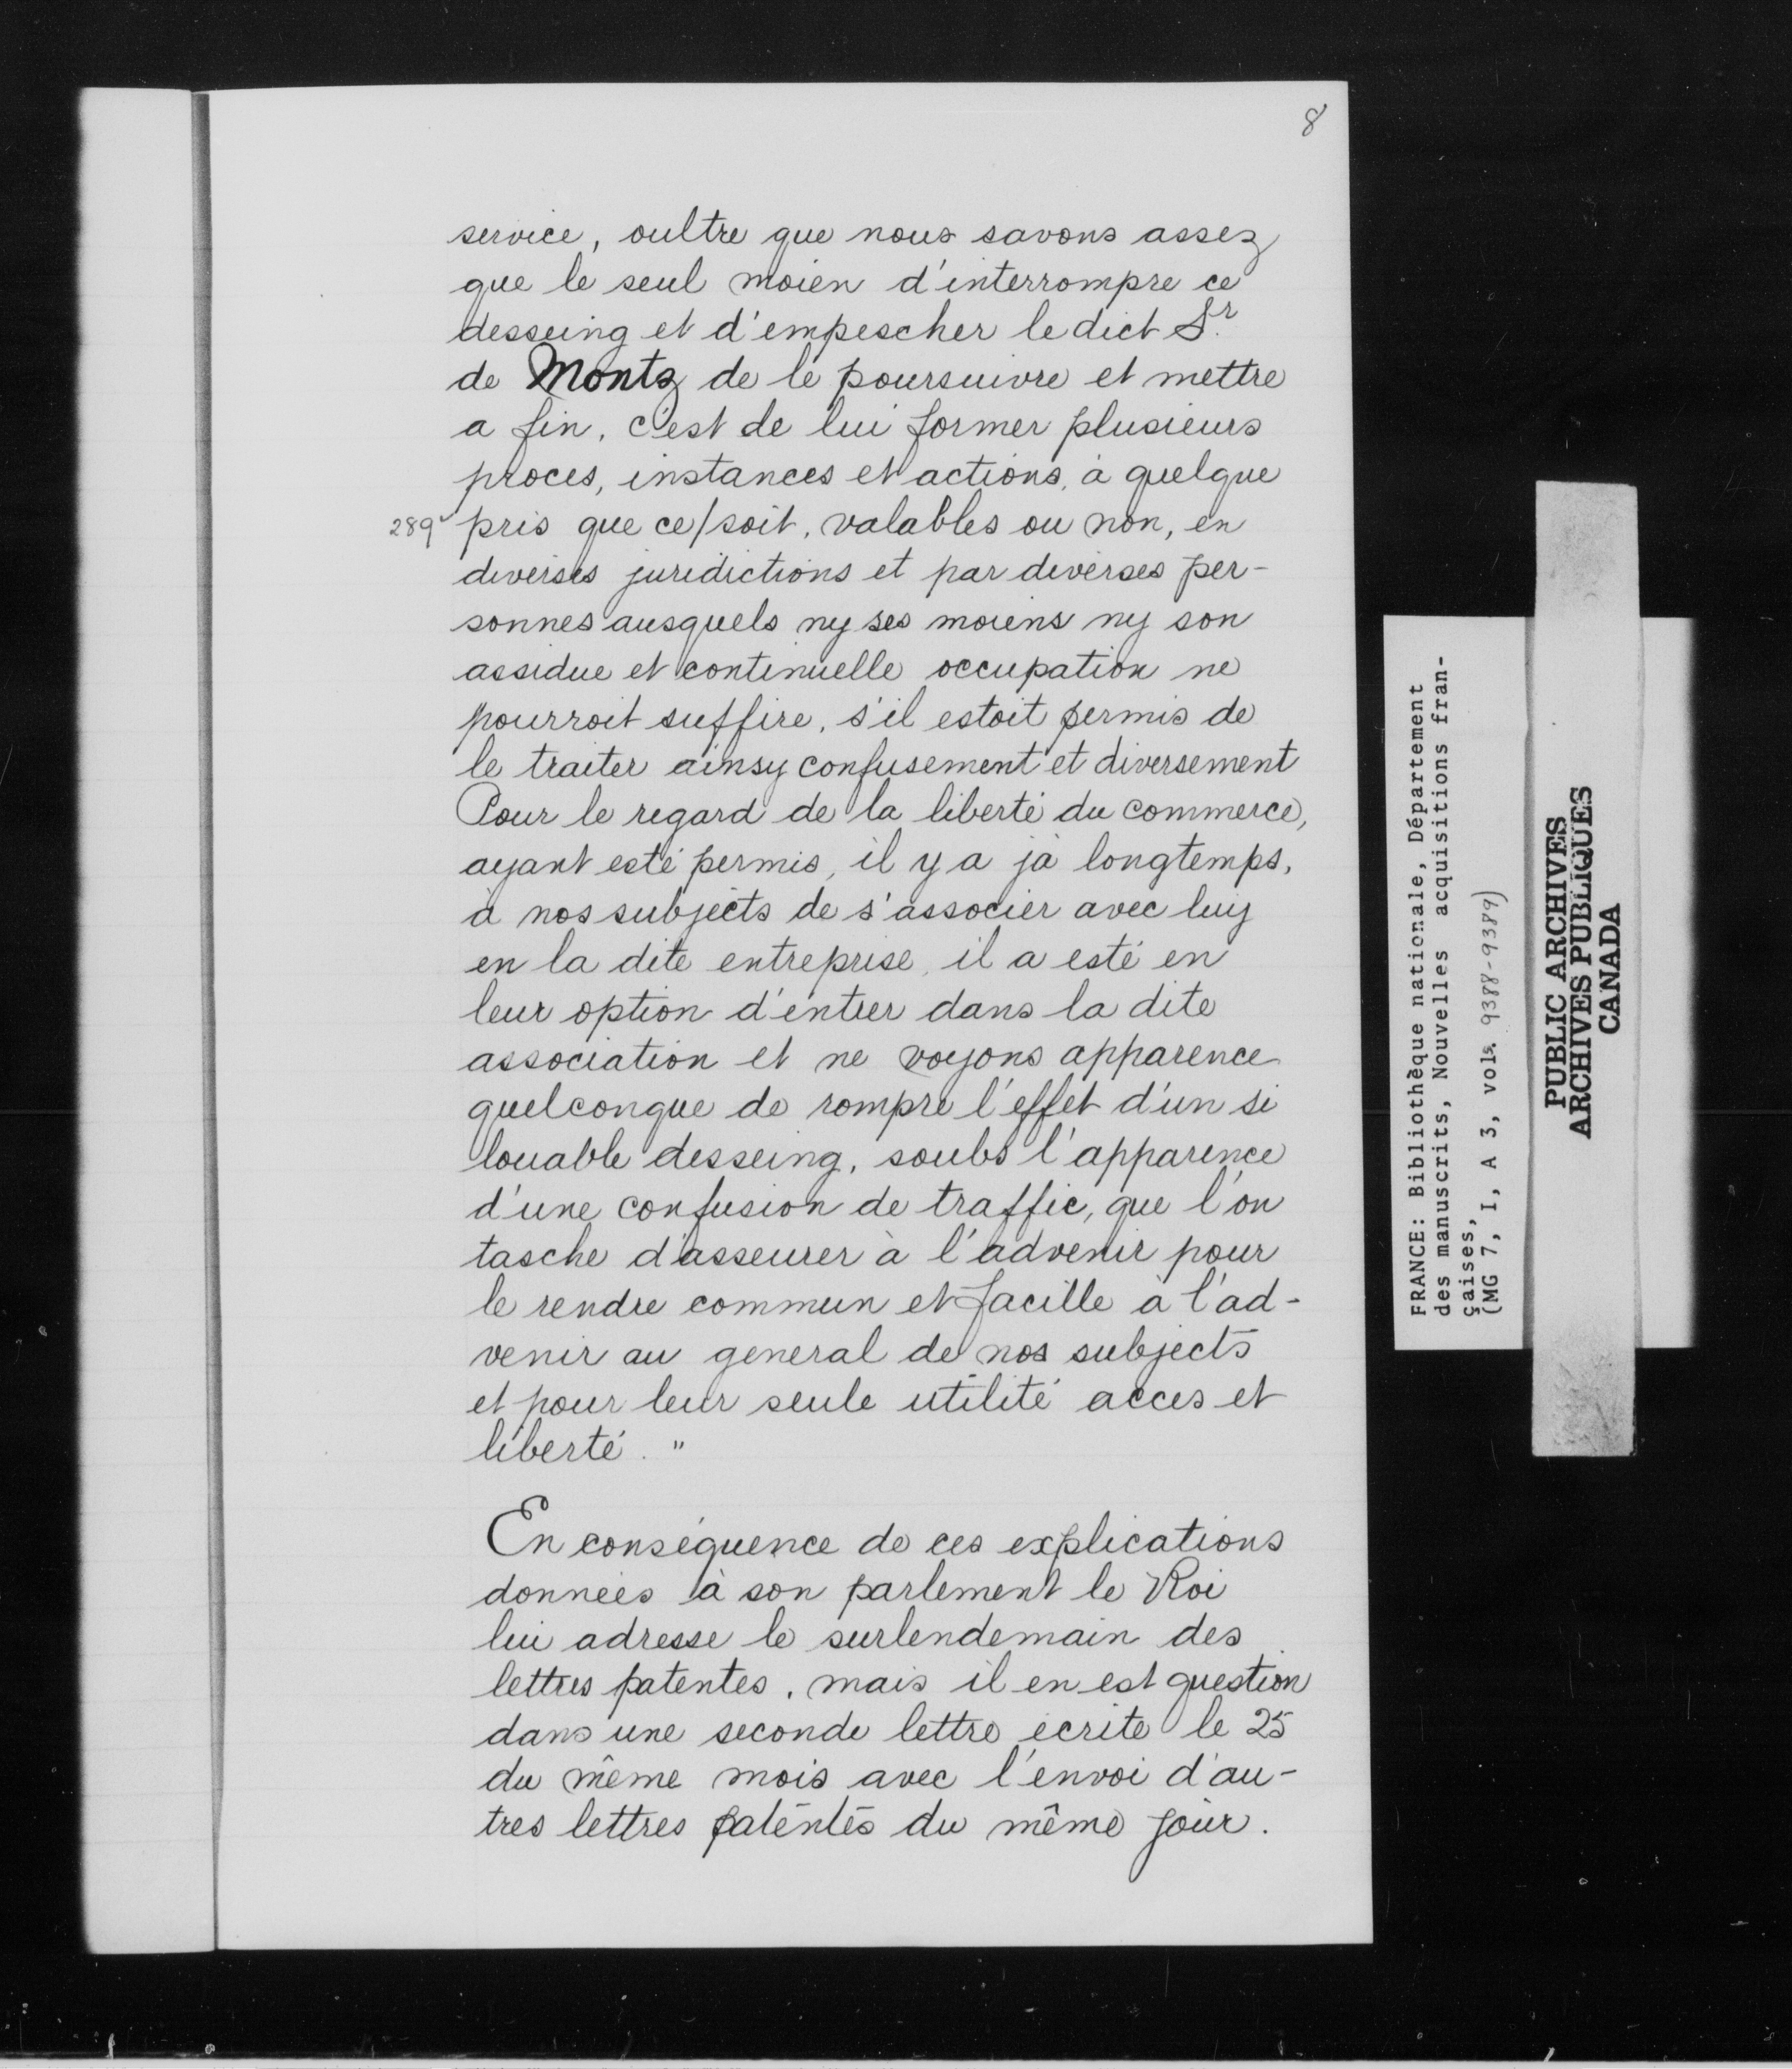 8
service, oultre que nous savons assez
que le seul moien d'interrompre ce
desseing et d'empescher le dict Sr.
de Montz de le poursuivre et mettre
a fin, c'est de lui former plusieurs
proces, instances et actions, à quelque
289v pris que ce/soit, valables ou non, en
diverses juridictions et par diverses per-
sonnes ausquels ny ses moiens ny son
assidue et continuelle occupation ne
pourroit suffire, s'il estoit permis de
le traiter ainsy confusement et diversement
Pour le regard de la liberté du commerce,
ayant esté permis, il y a jà longtemps,
à nos subjects de s'associer avec luy
en la dite entreprise, il a esté en
leur option d'entrer dans la dite
association et ne voyons apparence
quelconque de rompre l'effet d'un si
louable desseing, soubs l'apparence
d'une confusion de traffic, que l'on
tasche d'asseurer à l'advenir pour
le rendre commun et facille à l'ad-
venir au general de nos subjects
et pour leur seule utilité acces et
liberté. "
En conséquence de ces explications
données à son parlement le Roi
lui adresse le surlendemain des
lettres patentes, mais il en est question
dans une seconde lettre écrite le 25
du même mois avec l'envoi d'au-
tres lettres patentes du même jour.
FRANCE: Bibliothèque nationale, Département
des manuscrits, Nouvelles acquisitions fran-
çaises,
(MG 7, I, A 3, vols. 9388-9389)
PUBLIC ARCHIVES
ARCHIVES PUBLIQUES
CANADA